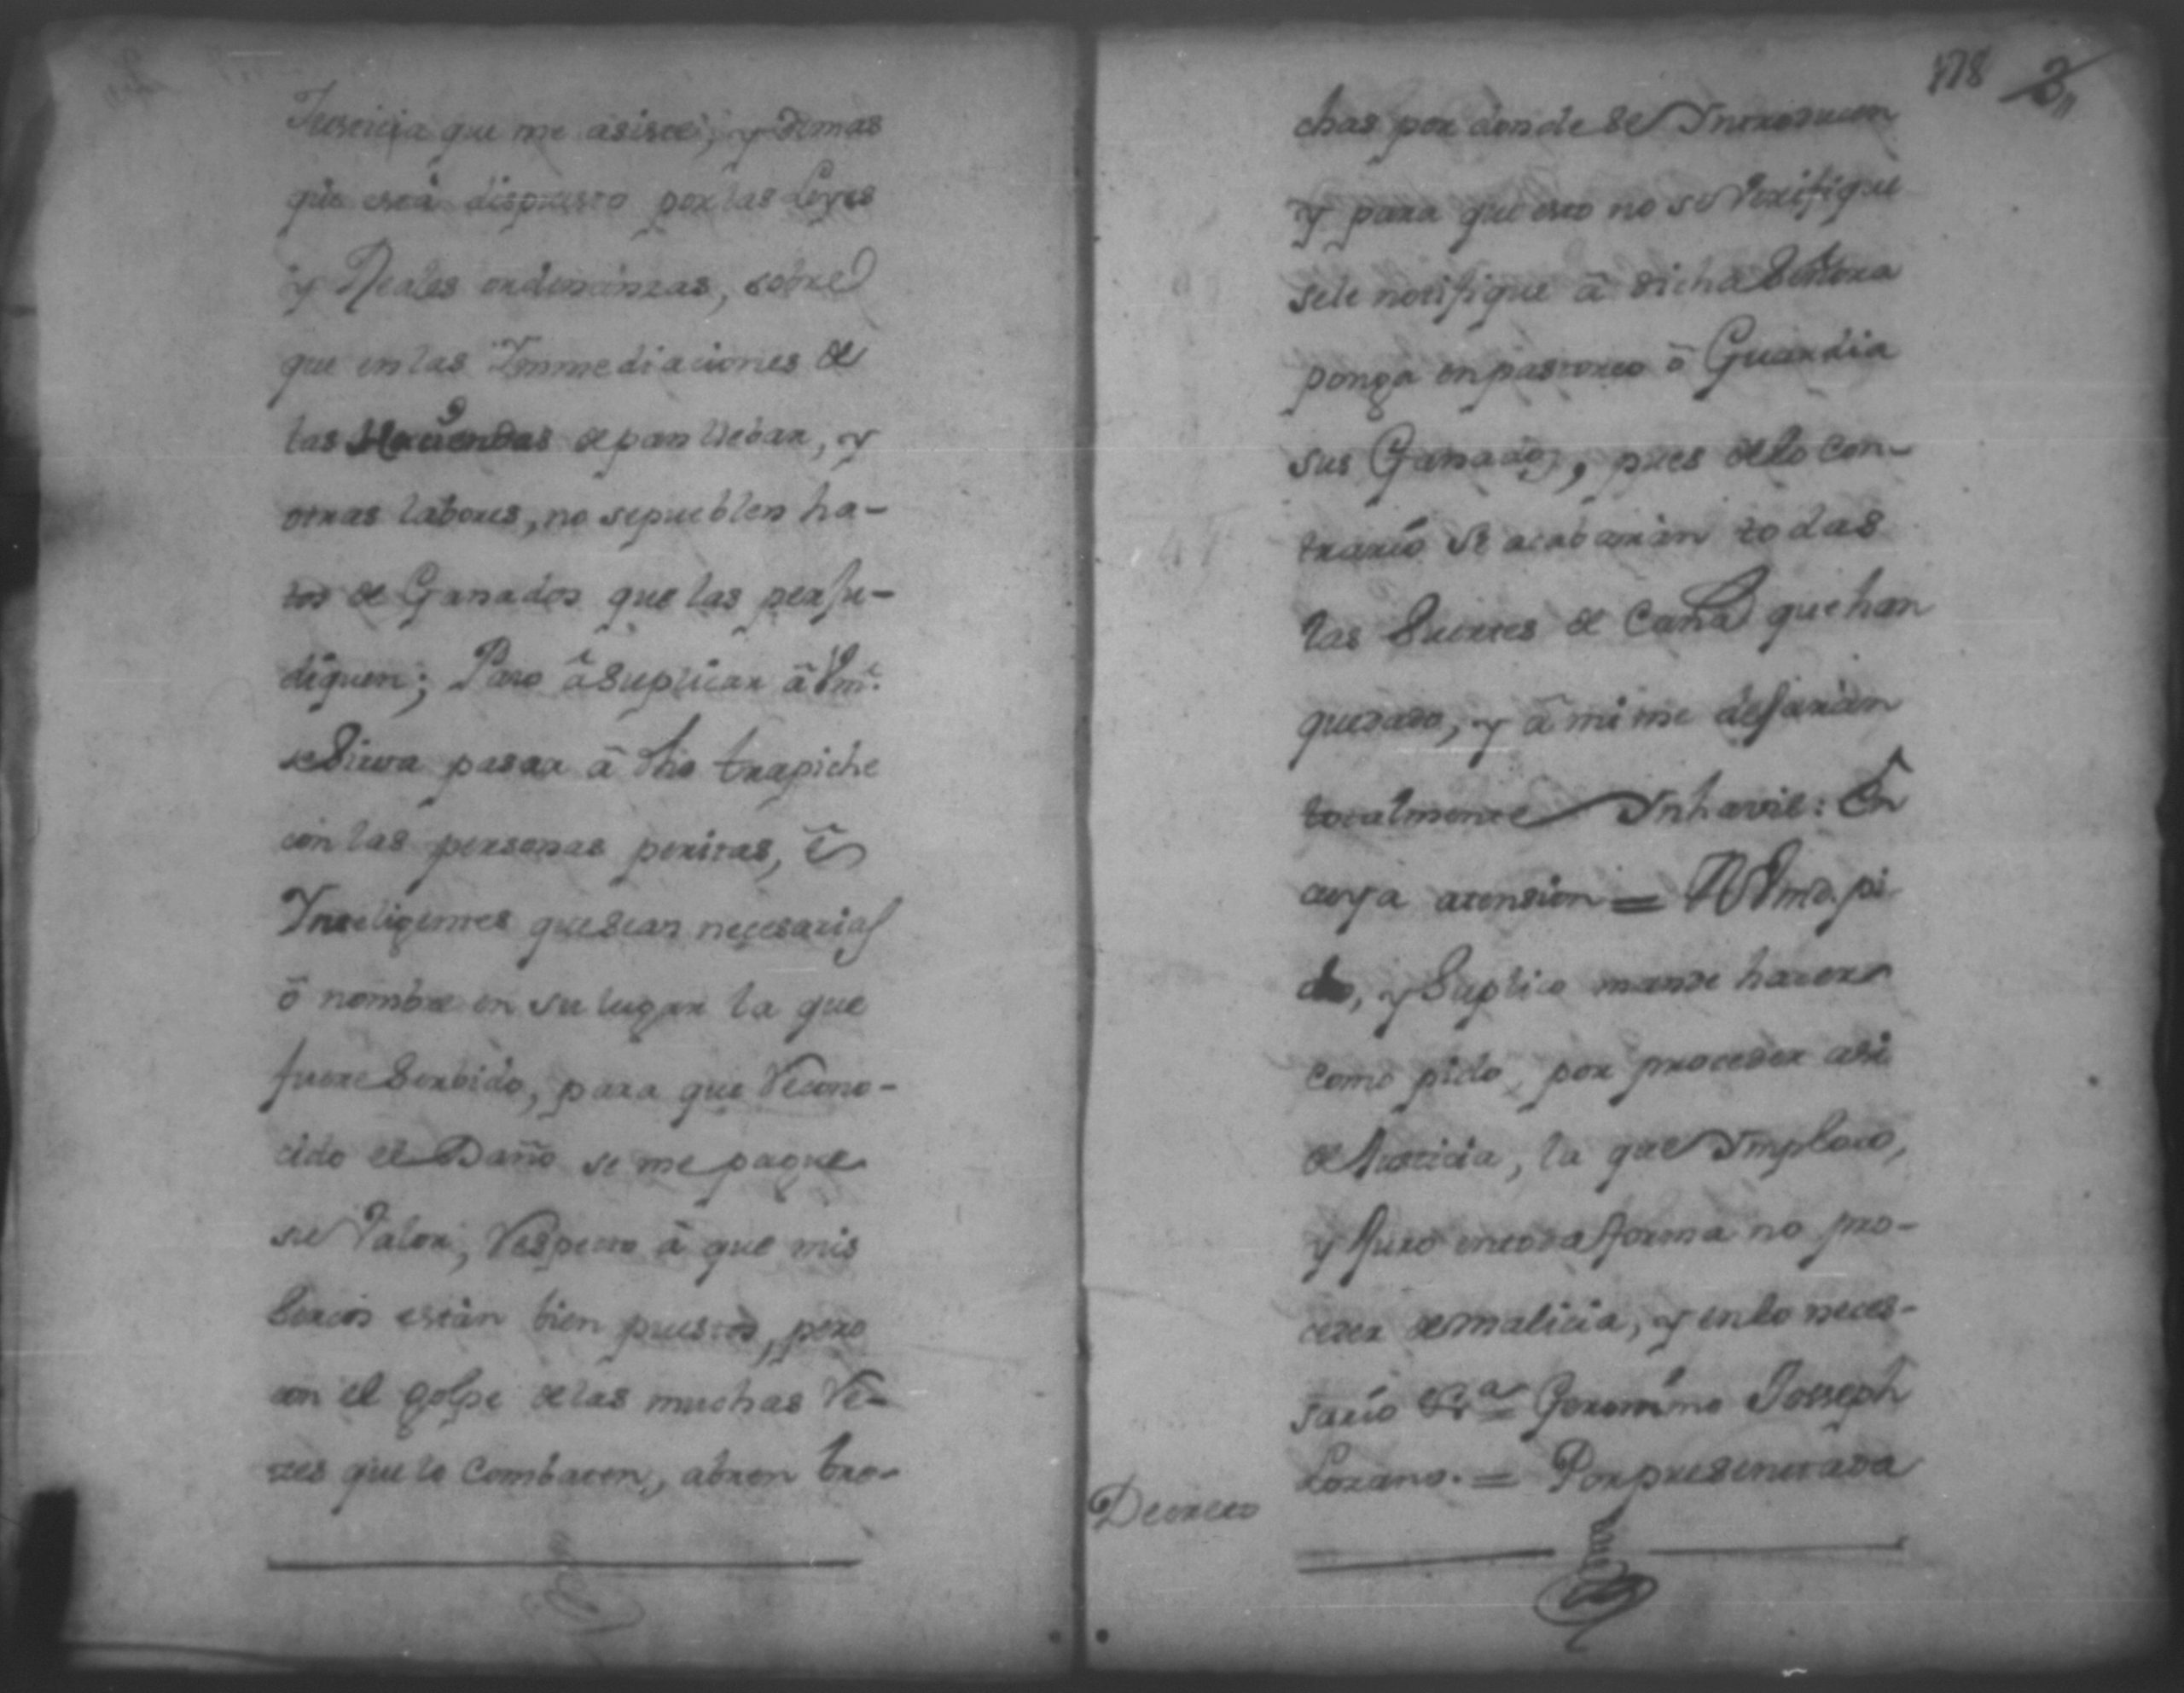 Justicia que me asiste, y demas
que está dispuesto por las Leyes
y Reales ordenanzas, sobre
que en las Ynmediaciones de
las Haciendas de pan llebar, y
otras labores, no se pueblen ha-
tos de Ganados que las perju-
diquen; Paso â suplicar â Vm.
se Sirva pasar â dho trapiche
con las personas peritas, ê
Ynteligentes que sean necesarias
ô nombre en su lugar la que
fuere Serbido, para que Recono-
cido el Daño se me pague
su Valor, Respecto â que mis
Sercos están bien puestos, pero
con el golpe de las muchas Re-
zes que lo Combaten, abren bre-
178 2
chas por donde se Yntroducen
y para que esto no se Verifique
se le notifique â dicha Señora
ponga en pastoreo ô Guardia
sus Ganados, pues de lo con-
trario se acabarán todas
las Suertes de Caña que han
quedado, y â mi me dejarán
totalmente Ynhavil: En
cuya atension = A Vmd. pi
do, y Suplico mande hacer
como pido, por proceder asi
de Justicia, la que Ymploro,
y Juro en toda forma no pro-
ceder de malicia, y en lo neces-
sario &ra = Geronimo Josseph
Decreto Lozano. = Por presentada